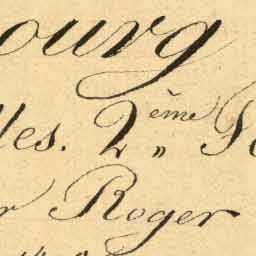 ourg
les. 2ème
r Roger